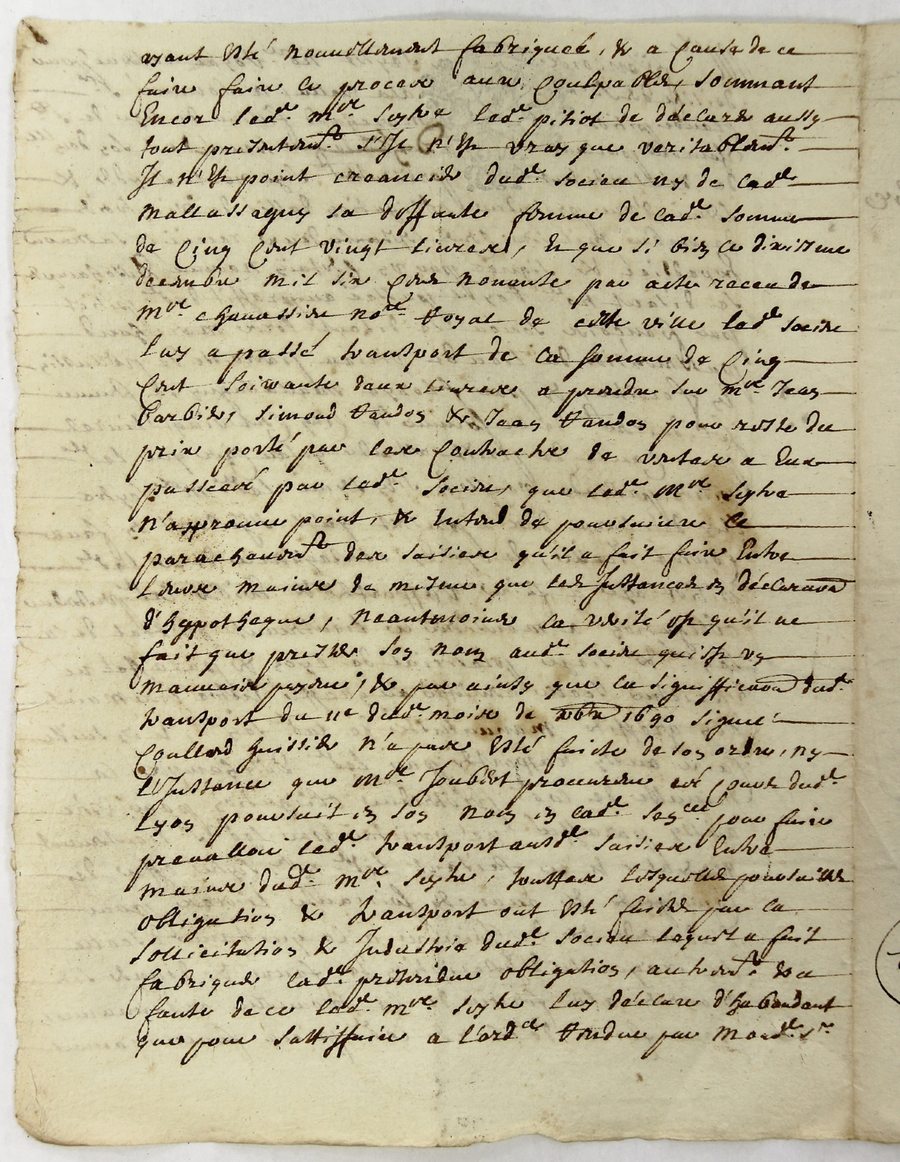 ayant esté nouvellement fabriquée, & a cause de ce
faire faire le proces aux coulpables, sommant
Encor led.t m.re Seyve led.t pitiot de déclarer aussy
tout presentem.t s'Il n'Est vray que veritablem.t
Il n'Est point creancier dud.t socieu ny de lad.te
mallassagny sa deffunte femme de lad.te somme
de Cinq Cent vingt livres, Et que si bien le dixiesme
decembre mil six Cens nonente par acte receu de
m.re chavassieu no.re Royal de cette ville led.t socieu
luy a passé transport de la somme de Cinq
Cent soixante deux livres a prendre sur m.re Jean
barbier, simond & Jean pour reste du
prix porté par les Contracts de ventes a Eux
passées par led.t socieu, que led.t m.re Seyve
n'approuve point, & Entend de poursuivre le
parachevem.t des saisies qu'il a fait faire Entre
leurs mains de mesme que les Instances en déclara̅on
d'hypotheque, neantmoins la verité est qu'il ne
fait que prester son nom aud.t socieu qui est un
mauvais payeur, & par ainsy que la signiffica̅on dud.t
transport du 11e dud.t mois de xb̅re 1690 signée
Coullard huissier n'a pas Esté faicte de son ordre, ny
l'Instance que m.re Joubert procureur ez Cours dud.t
Lyon poursuit en son nom en lad.te sen.cée pour faire
prevalloir led.t transport ausd.es saisies Entre
mains dud.t m.re Seyve, touttes lesquelles poursuittes
obligation & transport ont Esté faictes par la
sollicitation & Industrie dud.t socieu lequel a fait
fabriquer lad.te prétendue obligation, autrem.t & a
faute de ce led.t m.re Seyve luy déclare d'habondant
que pour sattisfaire a l'ord.ce Rendue par mond.t s.r